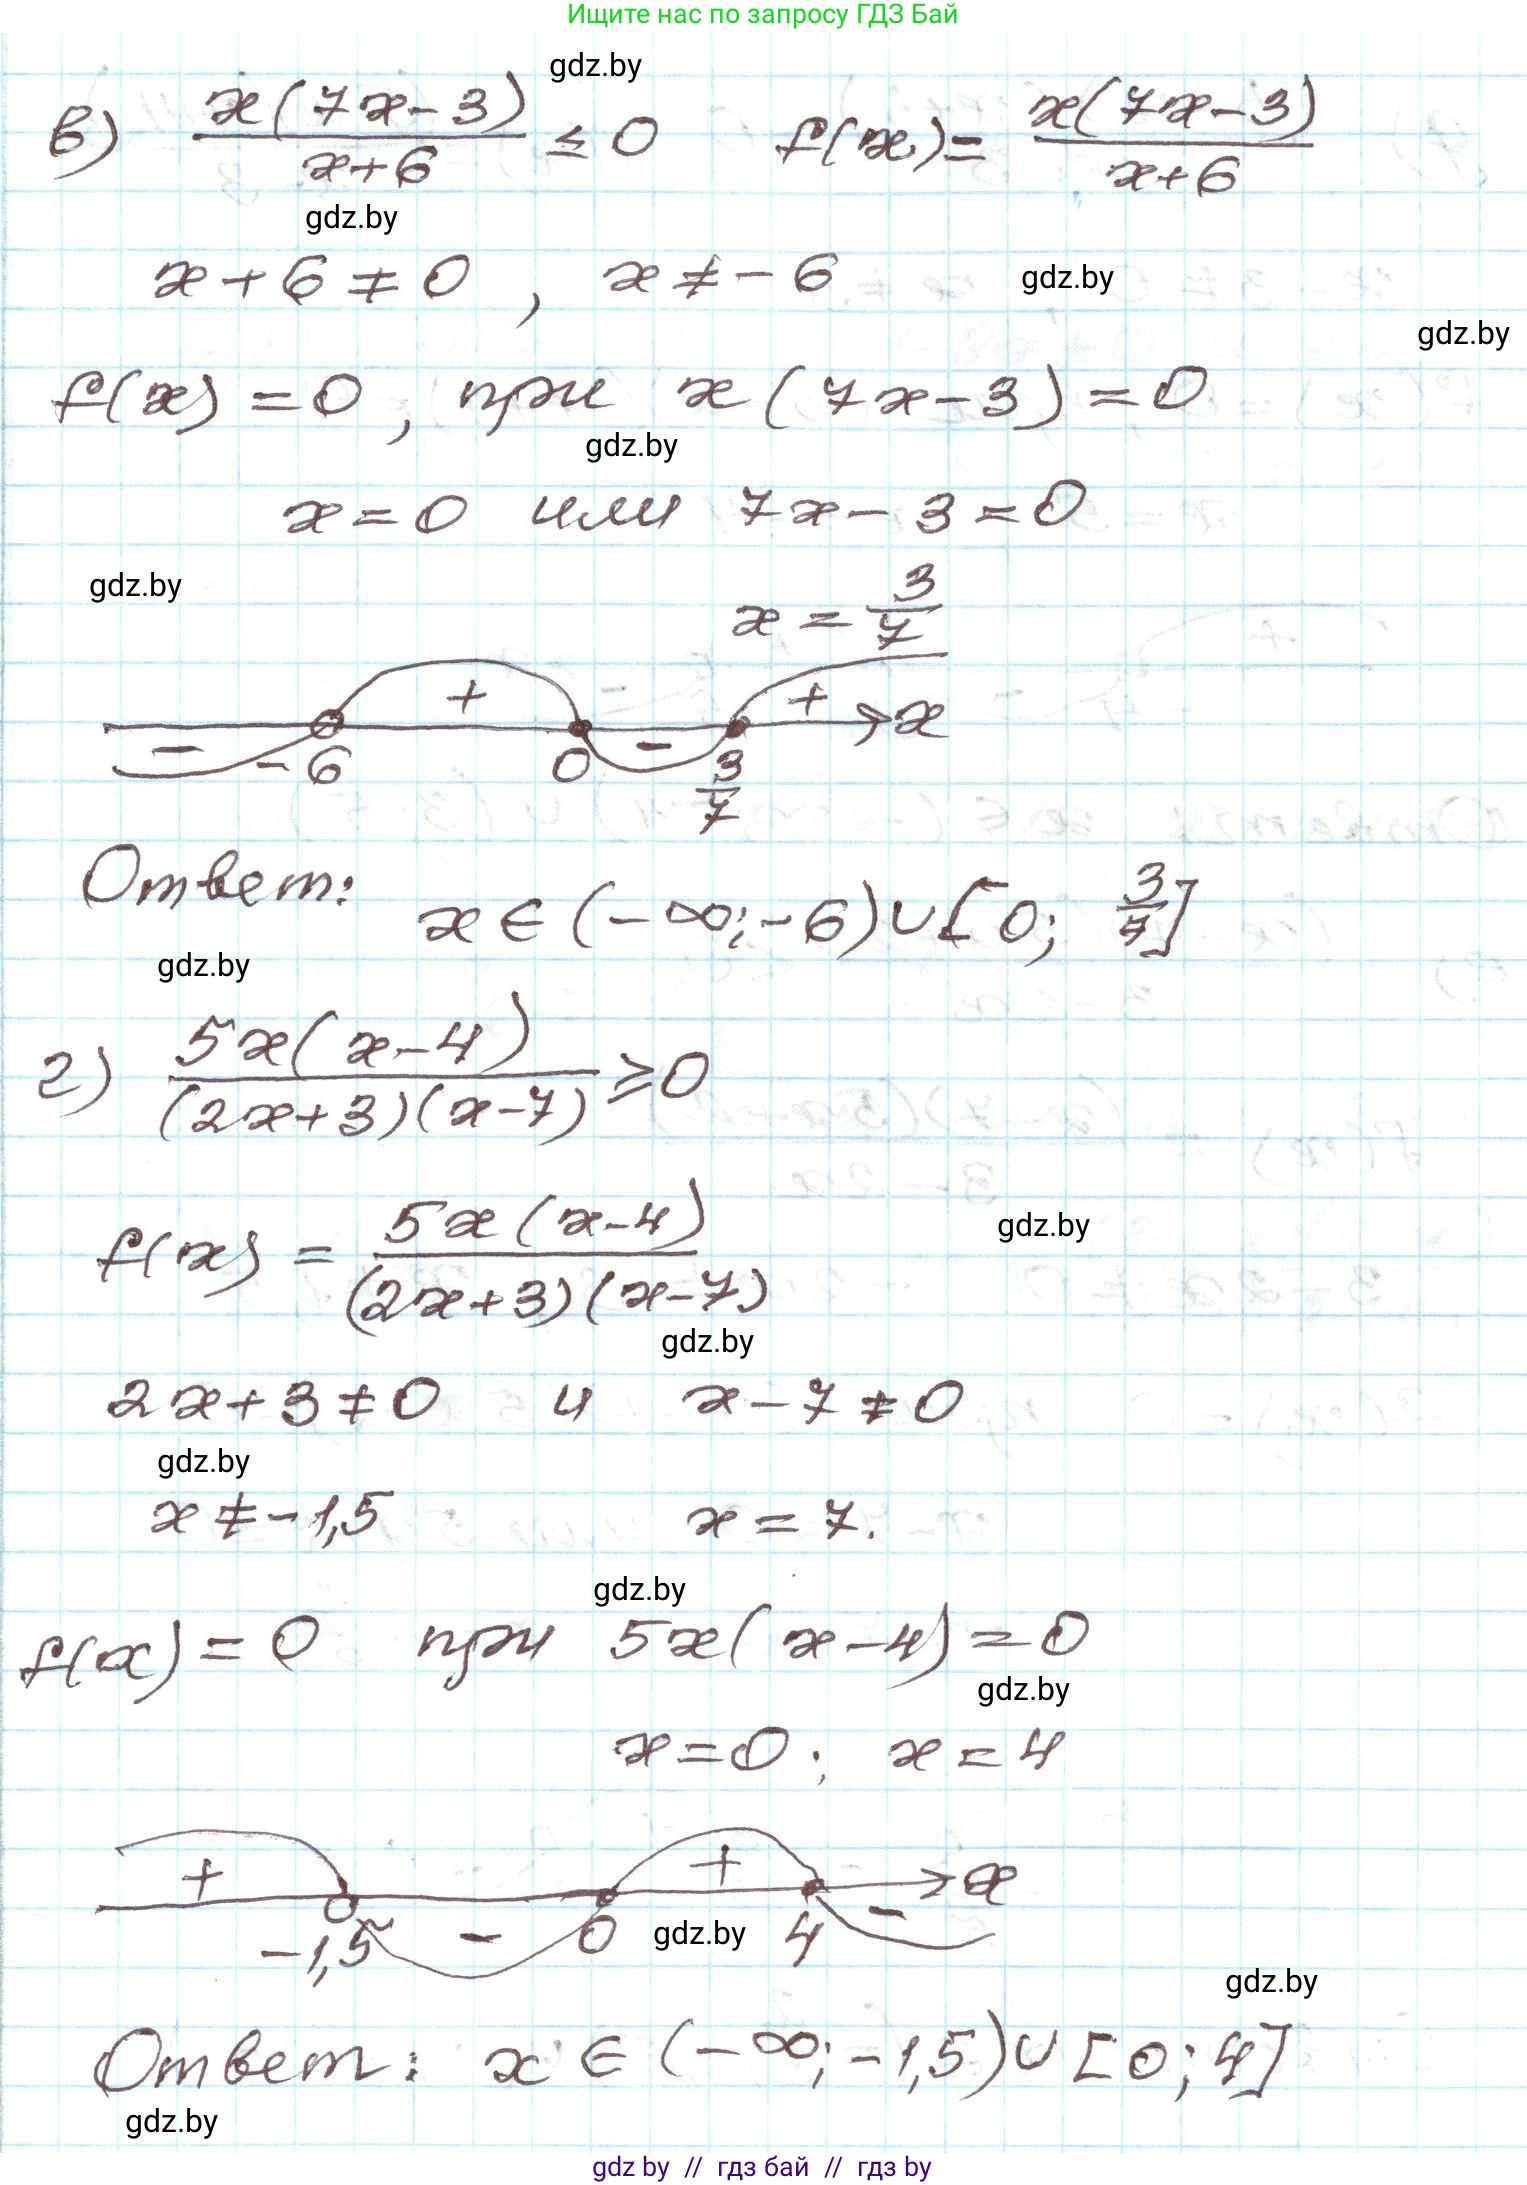 Ищите нас по запросу ГДЗ Бай
gdz.by
в) x(7x-3)/(x+6) ≤ 0   f(x)= x(7x-3)/(x+6)
gdz.by
x+6≠0, x≠-6 gdz.by
gdz.by
f(x)=0, при x(7x-3)=0
gdz.by
x=0 или 7x-3=0
gdz.by
x = 3/7
- + - + x
-6 0 3/7
Ответ: x∈(-∞;-6)∪[0; 3/7]
gdz.by
г) 5x(x-4)/((2x+3)(x-7)) ≥0
f(x) = 5x(x-4)/((2x+3)(x-7)) gdz.by
gdz.by
2x+3≠0 и x-7≠0
gdz.by
x≠-1,5 x=7.
gdz.by
f(x)=0 при 5x(x-4)=0
gdz.by
x=0; x=4
+ - + - x
-1,5 0 gdz.by 4
gdz.by
Ответ: x∈(-∞;-1,5)∪[0;4]
gdz.by
gdz by // гдз бай // гдз by